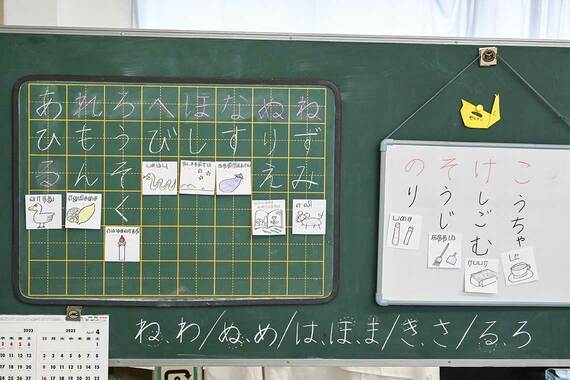 ねずみ
எலி
ぬりえ
なす
கத்திரிக்காய்
ほし
நட்சத்திரம்
へび
பாம்பு
ろうそく
மெழுகுவர்த்தி
れもん
எலுமிச்சை
あひる
வாத்து
こうちゃ
டீ
けしごむ
ரப்பர்
そうじ
சுத்தம்
のり
பசை
ね、わ/ぬ、め/は、ほ、ま/き、さ/る、ろ
2023
April 4